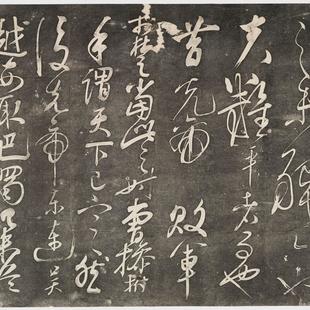 之未解六也
夫難平者事也
昔先帝敗軍
於楚當此之時曹操拊
手謂天下已定然
後先帝東連吳
越西取巴蜀